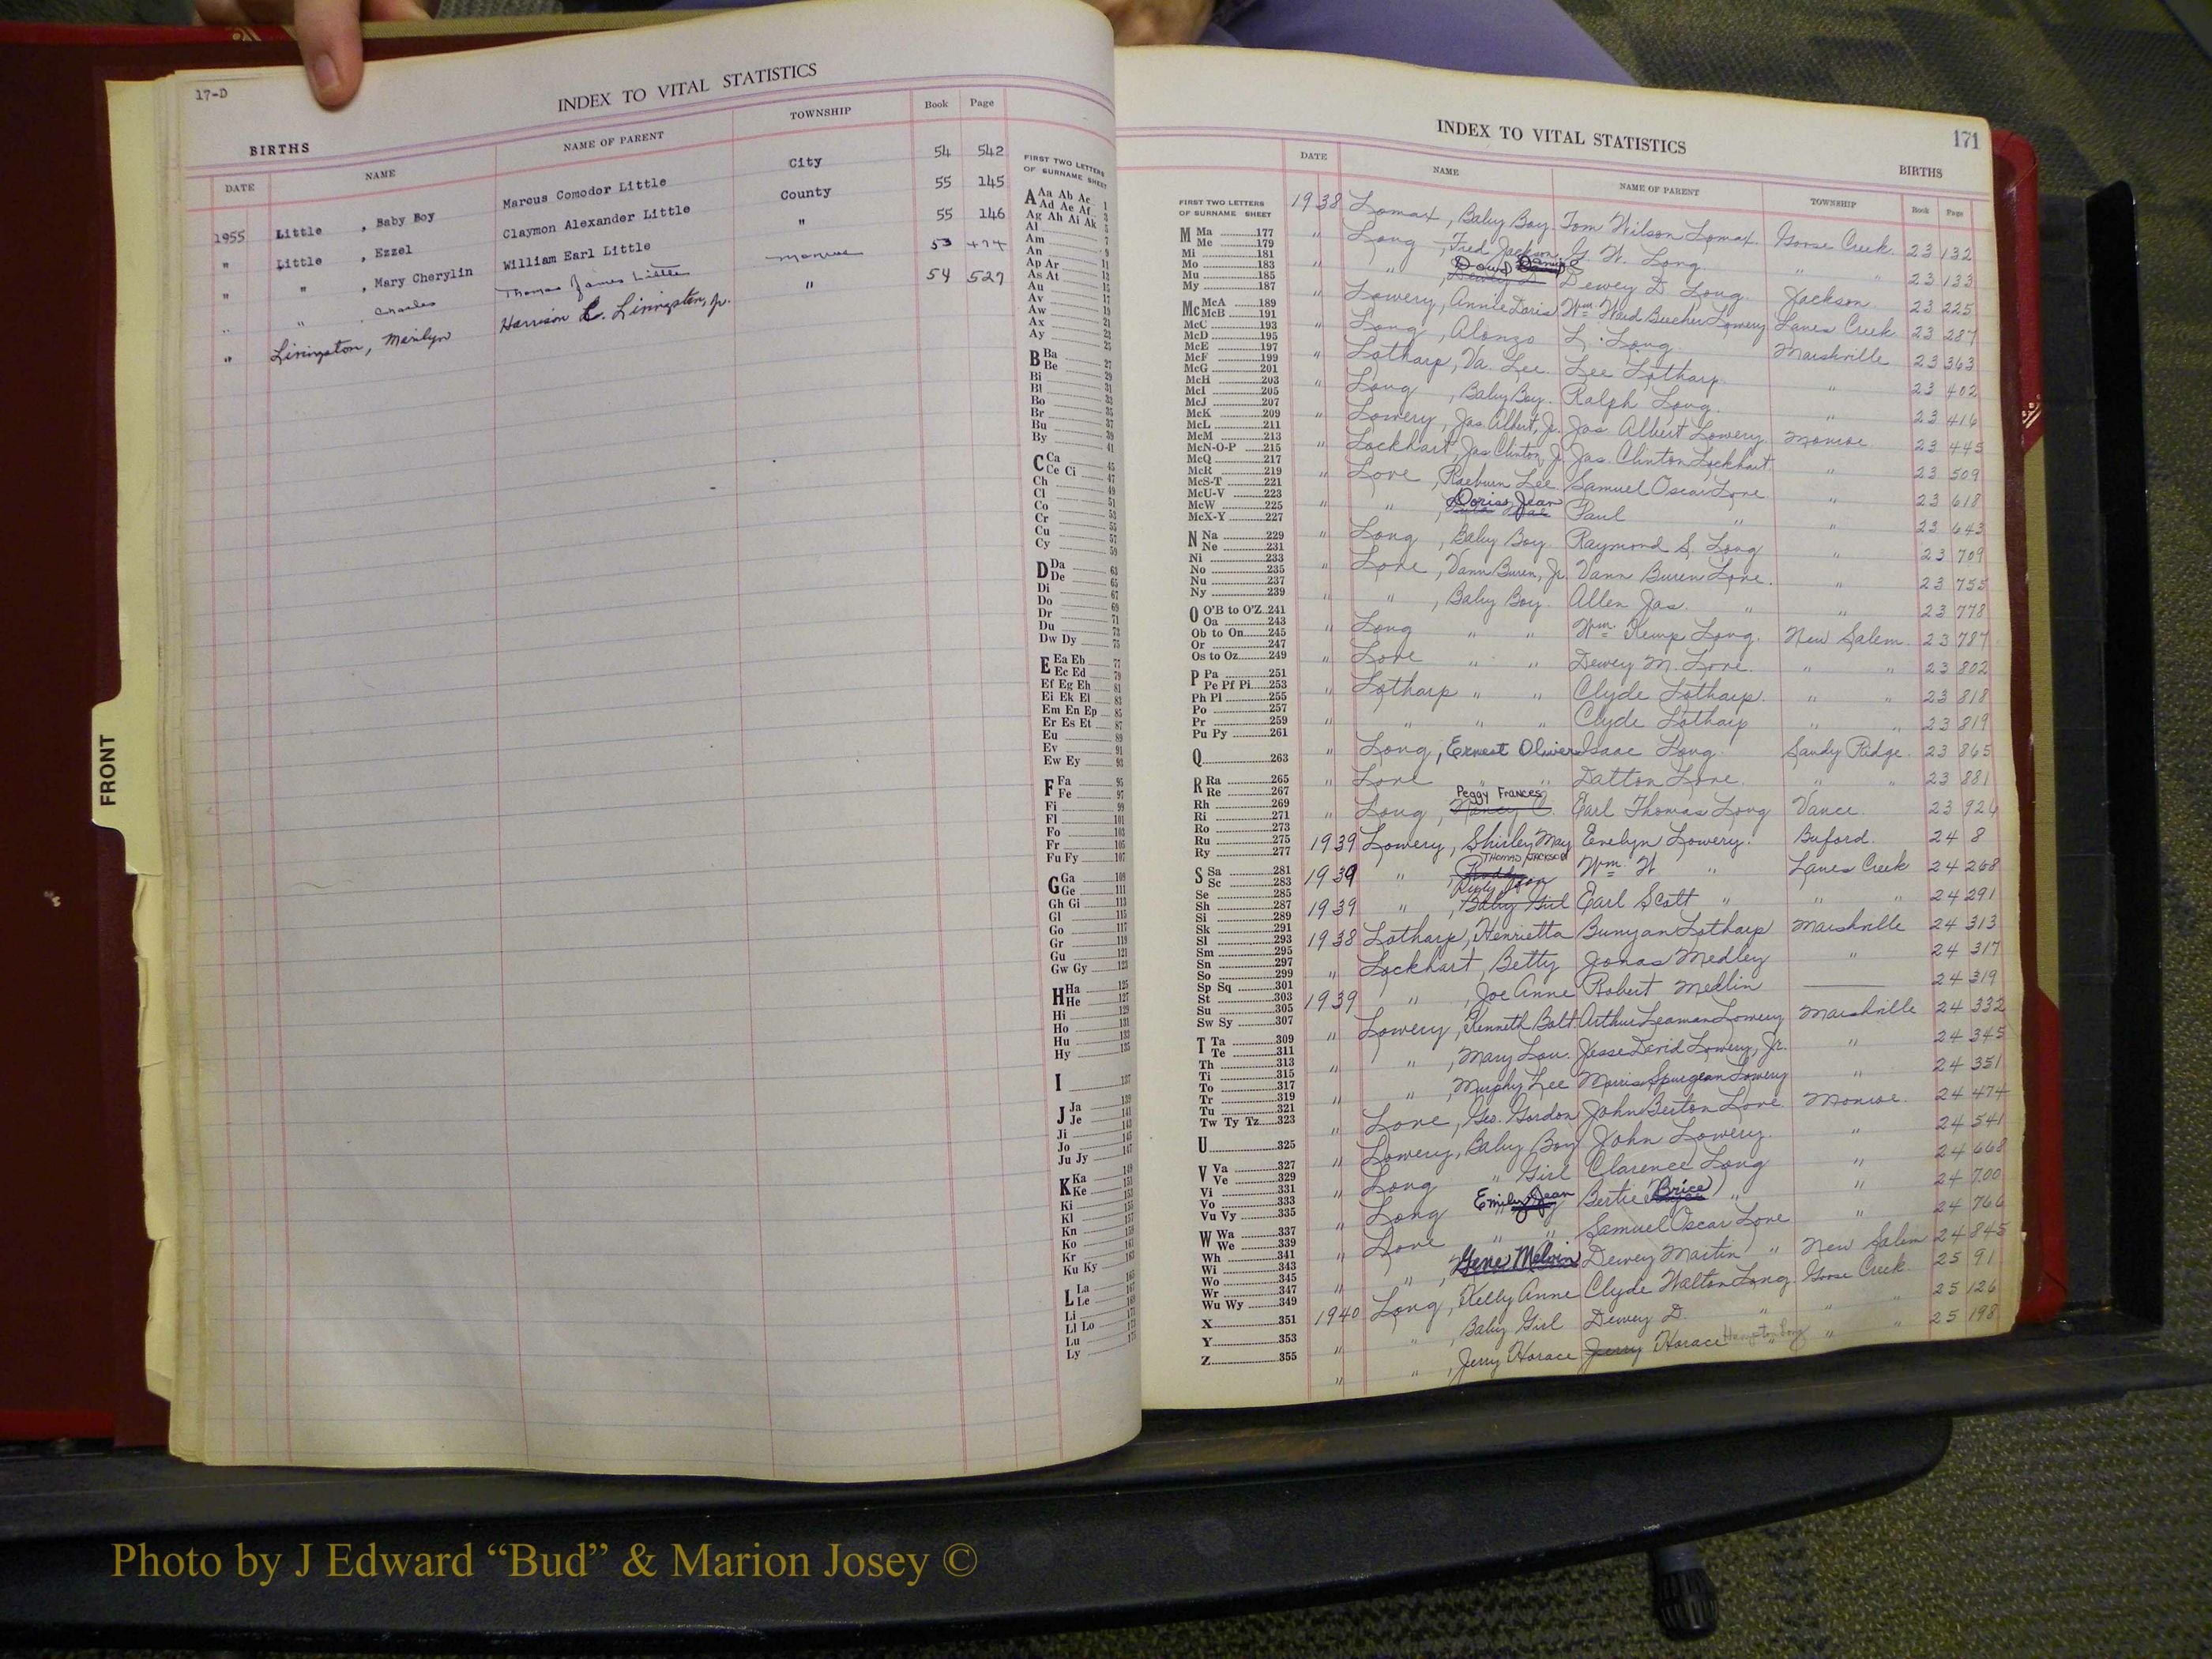 17-D
INDEX TO VITAL STATISTICS
BIRTHS
DATE NAME NAME OF PARENT TOWNSHIP Book Page
1955 Little , Baby Boy Marcus Comodor Little City 54 542
" Little , Ezzel Claymon Alexander Little County 55 145
" " , Mary Cherylin William Earl Little " 55 146
" " , Charles Thomas James Little Monroe 53 474
" Livingston, Marilyn Harrison L. Livingston, Jr. " 54 527
FIRST TWO LETTERS
OF SURNAME SHEET
A Aa Ab Ac 1
Ad Ae Af 3
Ag Ah Ai Ak 5
Al 7
Am 9
An 11
Ap Ar 13
As At 15
Au 17
Av 19
Aw 21
Ax 23
Ay 25
B Ba 27
Be 29
Bi 31
Bl 33
Bo 35
Br 37
Bu 39
By 41
C Ca 45
Ce Ci 47
Ch 49
Cl 51
Co 53
Cr 55
Cu 57
Cy 59
D Da 63
De 65
Di 67
Do 69
Dr 71
Du 73
Dw Dy 75
E Ea Eb 77
Ec Ed 79
Ef Eg Eh 81
Ei Ek El 83
Em En Ep 85
Er Es Et 87
Eu 89
Ev 91
Ew Ey 93
F Fa 95
Fe 97
Fi 99
Fl 101
Fo 103
Fr 105
Fu Fy 107
G Ga 109
Ge 111
Gh Gi 113
Gl 115
Go 117
Gr 119
Gu 121
Gw Gy 123
H Ha 125
He 127
Hi 129
Ho 131
Hu 133
Hy 135
I 137
J Ja 139
Je 141
Ji 143
Jo 145
Ju Jy 147
K Ka 149
Ke 151
Ki 153
Kl 155
Kn 157
Ko 159
Kr 161
Ku Ky 163
L La 165
Le 167
Li 169
Ll Lo 171
Lu 173
Ly 175
FRONT
INDEX TO VITAL STATISTICS 171
BIRTHS
DATE NAME NAME OF PARENT TOWNSHIP Book Page
FIRST TWO LETTERS
OF SURNAME SHEET
M Ma 177
Me 179
Mi 181
Mo 183
Mu 185
My 187
Mc McA 189
McB 191
McC 193
McD 195
McE 197
McF 199
McG 201
McH 203
McI 205
McJ 207
McK 209
McL 211
McM 213
McN-O-P 215
McQ 217
McR 219
McS-T 221
McU-V 223
McW 225
McX-Y 227
N Na 229
Ne 231
Ni 233
No 235
Nu 237
Ny 239
O O'B to O'Z 241
Oa 243
Ob to On 245
Or 247
Os to Oz 249
P Pa 251
Pe Pf Pi 253
Ph Pl 255
Po 257
Pr 259
Pu Py 261
Q 263
R Ra 265
Re 267
Rh 269
Ri 271
Ro 273
Ru 275
Ry 277
S Sa 281
Sc 283
Se 285
Sh 287
Si 289
Sk 291
Sl 293
Sm 295
Sn 297
So 299
Sp Sq 301
St 303
Su 305
Sw Sy 307
T Ta 309
Te 311
Th 313
Ti 315
To 317
Tr 319
Tu 321
Tw Ty Tz 323
U 325
V Va 327
Ve 329
Vi 331
Vo 333
Vu Vy 335
W Wa 337
We 339
Wh 341
Wi 343
Wo 345
Wr 347
Wu Wy 349
X 351
Y 353
Z 355
1938 Lomax , Baby Boy. Tom Wilson Lomax. Goose Creek. 23 132
" Long , Fred Jackson G. W. Long. " " 23 133
" " , Dewey D Dewey D Long. Jackson. 23 225
" Lowery, Annie Doris Wm. Ward Beecher Lowery Lanes Creek 23 287
" Long , Alonzo L. Long. Marshville 23 363
" Lotharp, Va. Lee. Lee Lotharp. " 23 402
" Long , Baby Boy. Ralph Long. " 23 416
" Lowery, Jas. Albert, Jr. Jas. Albert Lowery. Monroe 23 445
" Lockhart, Jas. Clinton, Jr. Jas. Clinton Lockhart " 23 509
" Love , Raeburn Lee. Samuel Oscar Love " 23 618
" " , Doris Jean Paul " " 23 643
" Long , Baby Boy. Raymond S. Long " 23 709
" Love , Vann Buren, Jr. Vann Buren Love. " 23 755
" " , Baby Boy. Allen Jas. " " 23 778
" Long " " Wm. Kemp Long. New Salem. 23 787
" Love " " Dewey M. Love " " 23 802
" Lotharp " " Clyde Lotharp. " " 23 818
" " " " Clyde Lotharp " " 23 819
" Long , Ernest Oliver Isaac Long. Sandy Ridge. 23 865
" Love " " Datton Love. " " 23 881
Peggy Frances
" Long , Nancy C. Earl Thomas Long Vance. 23 924
1939 Lowery, Shirley May Evelyn Lowery. Buford. 24 8
THOMAS JACKSON
1939 " , Wm. W. " Lanes Creek 24 268
1939 " , Baby Girl Earl Scott " " " 24 291
1938 Lotharp, Henrietta Bunyan Lotharp Marshville 24 313
" Lockhart, Betty Jonas Medley " 24 317
1939 " , Joe Anne Robert Medlin 24 319
" Lowery, Kenneth Bolt Arthur Leaman Lowery Marshville 24 332
" " , Mary Lou. Jesse David Lowery, Jr. " 24 345
" " , Murphy Lee Morris Spurgeon Lowery " 24 351
" Love , Geo. Gordon John Berton Love. Monroe. 24 474
" Lowery, Baby Boy John Lowery. " 24 541
" Long " Girl Clarence Long " 24 668
" Long Emily Jean Bertie Brice " " 24 700
" Love " " Samuel Oscar Love " 24 766
" " , Gene Melvin Dewey Martin " New Salem 24 845
1940 Long, Kelly Anne Clyde Walton Long Goose Creek. 25 91
" " , Baby Girl Dewey D. " " " 25 126
" " , Jerry Horace Jerry Horace Hampton Long " " 25 198
Photo by J Edward “Bud” & Marion Josey ©